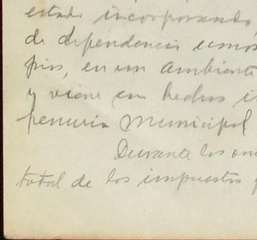 estado incorporando
de dependencias
pios, en un ambiente
y viene en hechos
penuria Municipal
Durante los
total de los impuestos